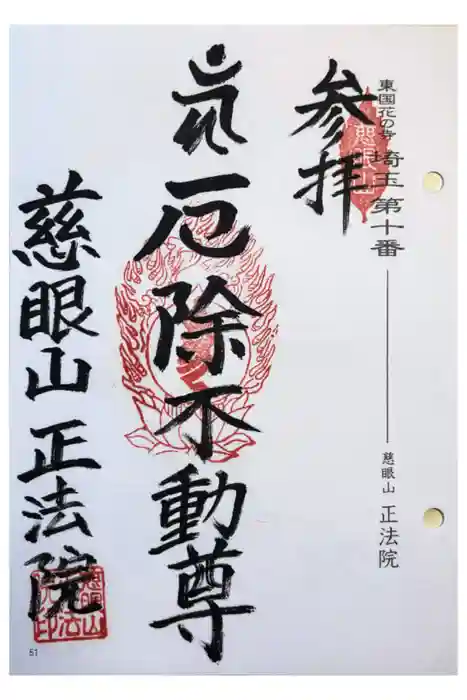 東国花の寺 埼玉第十番 慈眼山 正法院
参拝
厄除不動尊
慈眼山 正法院
慈眼山
51